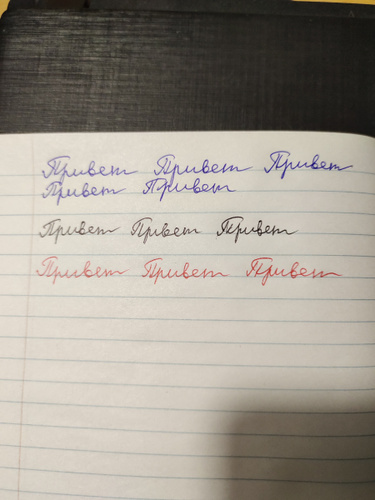 Привет Привет Привет
Привет Привет
Привет Привет Привет
Привет Привет Привет